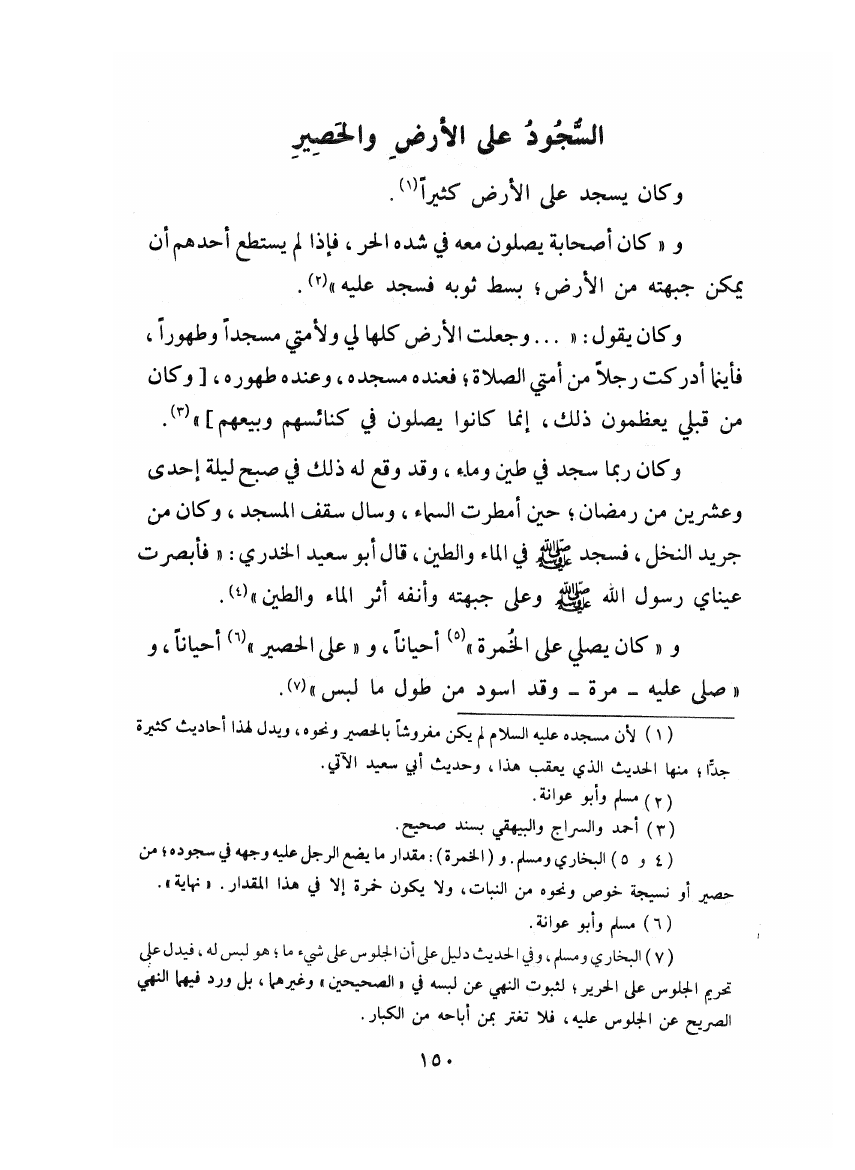 السُّجُودُ على الأرضِ والحَصِيرِ
وكان يسجد على الأرض كثيراً(١).
و « كان أصحابة يصلون معه في شده الحر ، فإذا لم يستطع أحدهم أن
يمكن جبهته من الأرض ؛ بسط ثوبه فسجد عليه »(٢).
وكان يقول : « ... وجعلت الأرض كلها لي ولأمتي مسجداً وطهوراً ،
فأينما أدركت رجلاً من أمتي الصلاة ؛ فعنده مسجده ، وعنده طهوره ، [ وكان
من قبلي يعظمون ذلك ، إنما كانوا يصلون في كنائسهم وبيعهم ] »(٣).
وكان ربما سجد في طين وماء ، وقد وقع له ذلك في صبح ليلة إحدى
وعشرين من رمضان ؛ حين أمطرت السماء ، وسال سقف المسجد ، وكان من
جريد النخل ، فسجد ﷺ في الماء والطين ، قال أبو سعيد الخدري : « فأبصرت
عيناي رسول الله ﷺ وعلى جبهته وأنفه أثر الماء والطين »(٤).
و « كان يصلي على الخُمرة »(٥) أحياناً ، و « على الحصير »(٦) أحياناً ، و
« صلى عليه - مرة - وقد اسود من طول ما لبس »(٧).
(١) لأن مسجده عليه السلام لم يكن مفروشاً بالحصير ونحوه ، ويدل لهذا أحاديث كثيرة
جدًّا ؛ منها الحديث الذي يعقب هذا ، وحديث أبي سعيد الآتي .
(٢) مسلم وأبو عوانة .
(٣) أحمد والسراج والبيهقي بسند صحيح .
(٤ و ٥) البخاري ومسلم . و (الخمرة) : مقدار ما يضع الرجل عليه وجهه في سجوده ؛ من
حصير أو نسيجة خوص ونحوه من النبات ، ولا يكون خمرة إلا في هذا المقدار . « نهاية » .
(٦) مسلم وأبو عوانة .
(٧) البخاري ومسلم ، وفي الحديث دليل على أن الجلوس على شيء ما ؛ هو لبس له ، فيدل على
تحريم الجلوس على الحرير ؛ لثبوت النهي عن لبسه في « الصحيحين » وغيرهما ، بل ورد فيهما النهي
الصريح عن الجلوس عليه ، فلا تغتر بمن أباحه من الكبار .
١٥٠